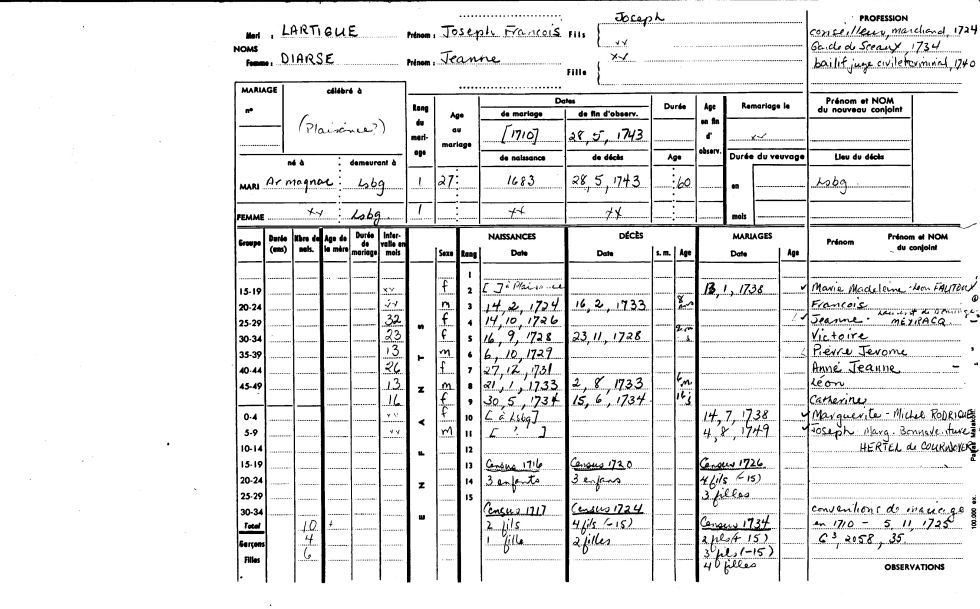 Joseph
PROFESSION
Mari : LARTIGUE Prénom : Joseph Francois Fils xx
conseilleur, marchand, 1724
NOMS
Garde de Sceaux, 1734
Femme : DIARSE Prénom : Jeanne Fille xx
bailif juge civil et criminal, 1740
MARIAGE célébré à
n° (Plaisance?)
Rang du mariage
Age au mariage
Dates
de mariage de fin d'observ.
[1710] 28, 5, 1743
de naissance de décès
Durée
Age
Age en fin d'observ.
Remariage le
xx
Durée du veuvage
en
mois
Prénom et NOM du nouveau conjoint
Lieu du décès
né à demeurant à
MARI Armagnac Lsbg 1 27 1683 28, 5, 1743 60 Lsbg
FEMME xx Lsbg 1 xx xx
Groupe Durée (ans) Nbre de nais. Age de la mère Durée de mariage Intervalle en mois ENFANTS Sexe Rang NAISSANCES Date DÉCÈS Date s. m. Age MARIAGES Date Age Prénom Prénom et NOM du conjoint
1
15-19 xx f 2 [ ] à Plaisance 13, 1, 1738 Marie Madeleine - Leon FAUTOUX
20-24 xx m 3 14, 2, 1724 16, 2, 1733 8 Francois
25-29 32 f 4 14, 10, 1726 Jeanne - MEYRACQ
30-34 23 f 5 16, 9, 1728 23, 11, 1728 2 m Victoire
35-39 13 m 6 6, 10, 1729 Pierre Jerome
40-44 26 f 7 27, 12, 1731 Anne Jeanne
45-49 13 m 8 21, 1, 1733 2, 8, 1733 6 m Léon
16 f 9 30, 5, 1734 15, 6, 1734 16 j Catherine
0-4 xx f 10 [ à Lsbg ] 14, 7, 1738 Marguerite - Michel RODRIGUE
5-9 xx m 11 [ ' ] 4, 8, 1749 Joseph Marg. Bonnaventure
10-14 12 HERTEL de COURNOYER
15-19 13 Census 1716 Census 1720 Census 1726
20-24 14 3 enfants 3 enfans 4 fils (-15)
25-29 15 3 filles
30-34 Census 1717 Census 1724 conventions de mariage
Total 10 + 2 fils 4 fils (-15) Census 1734 en 1710 - 5, 11, 1725
Garçons 4 1 fille 2 filles 2 fils (+ 15) G3, 2058, 35
Filles 6 3 fils (-15)
4 filles
OBSERVATIONS
100.000 ex.